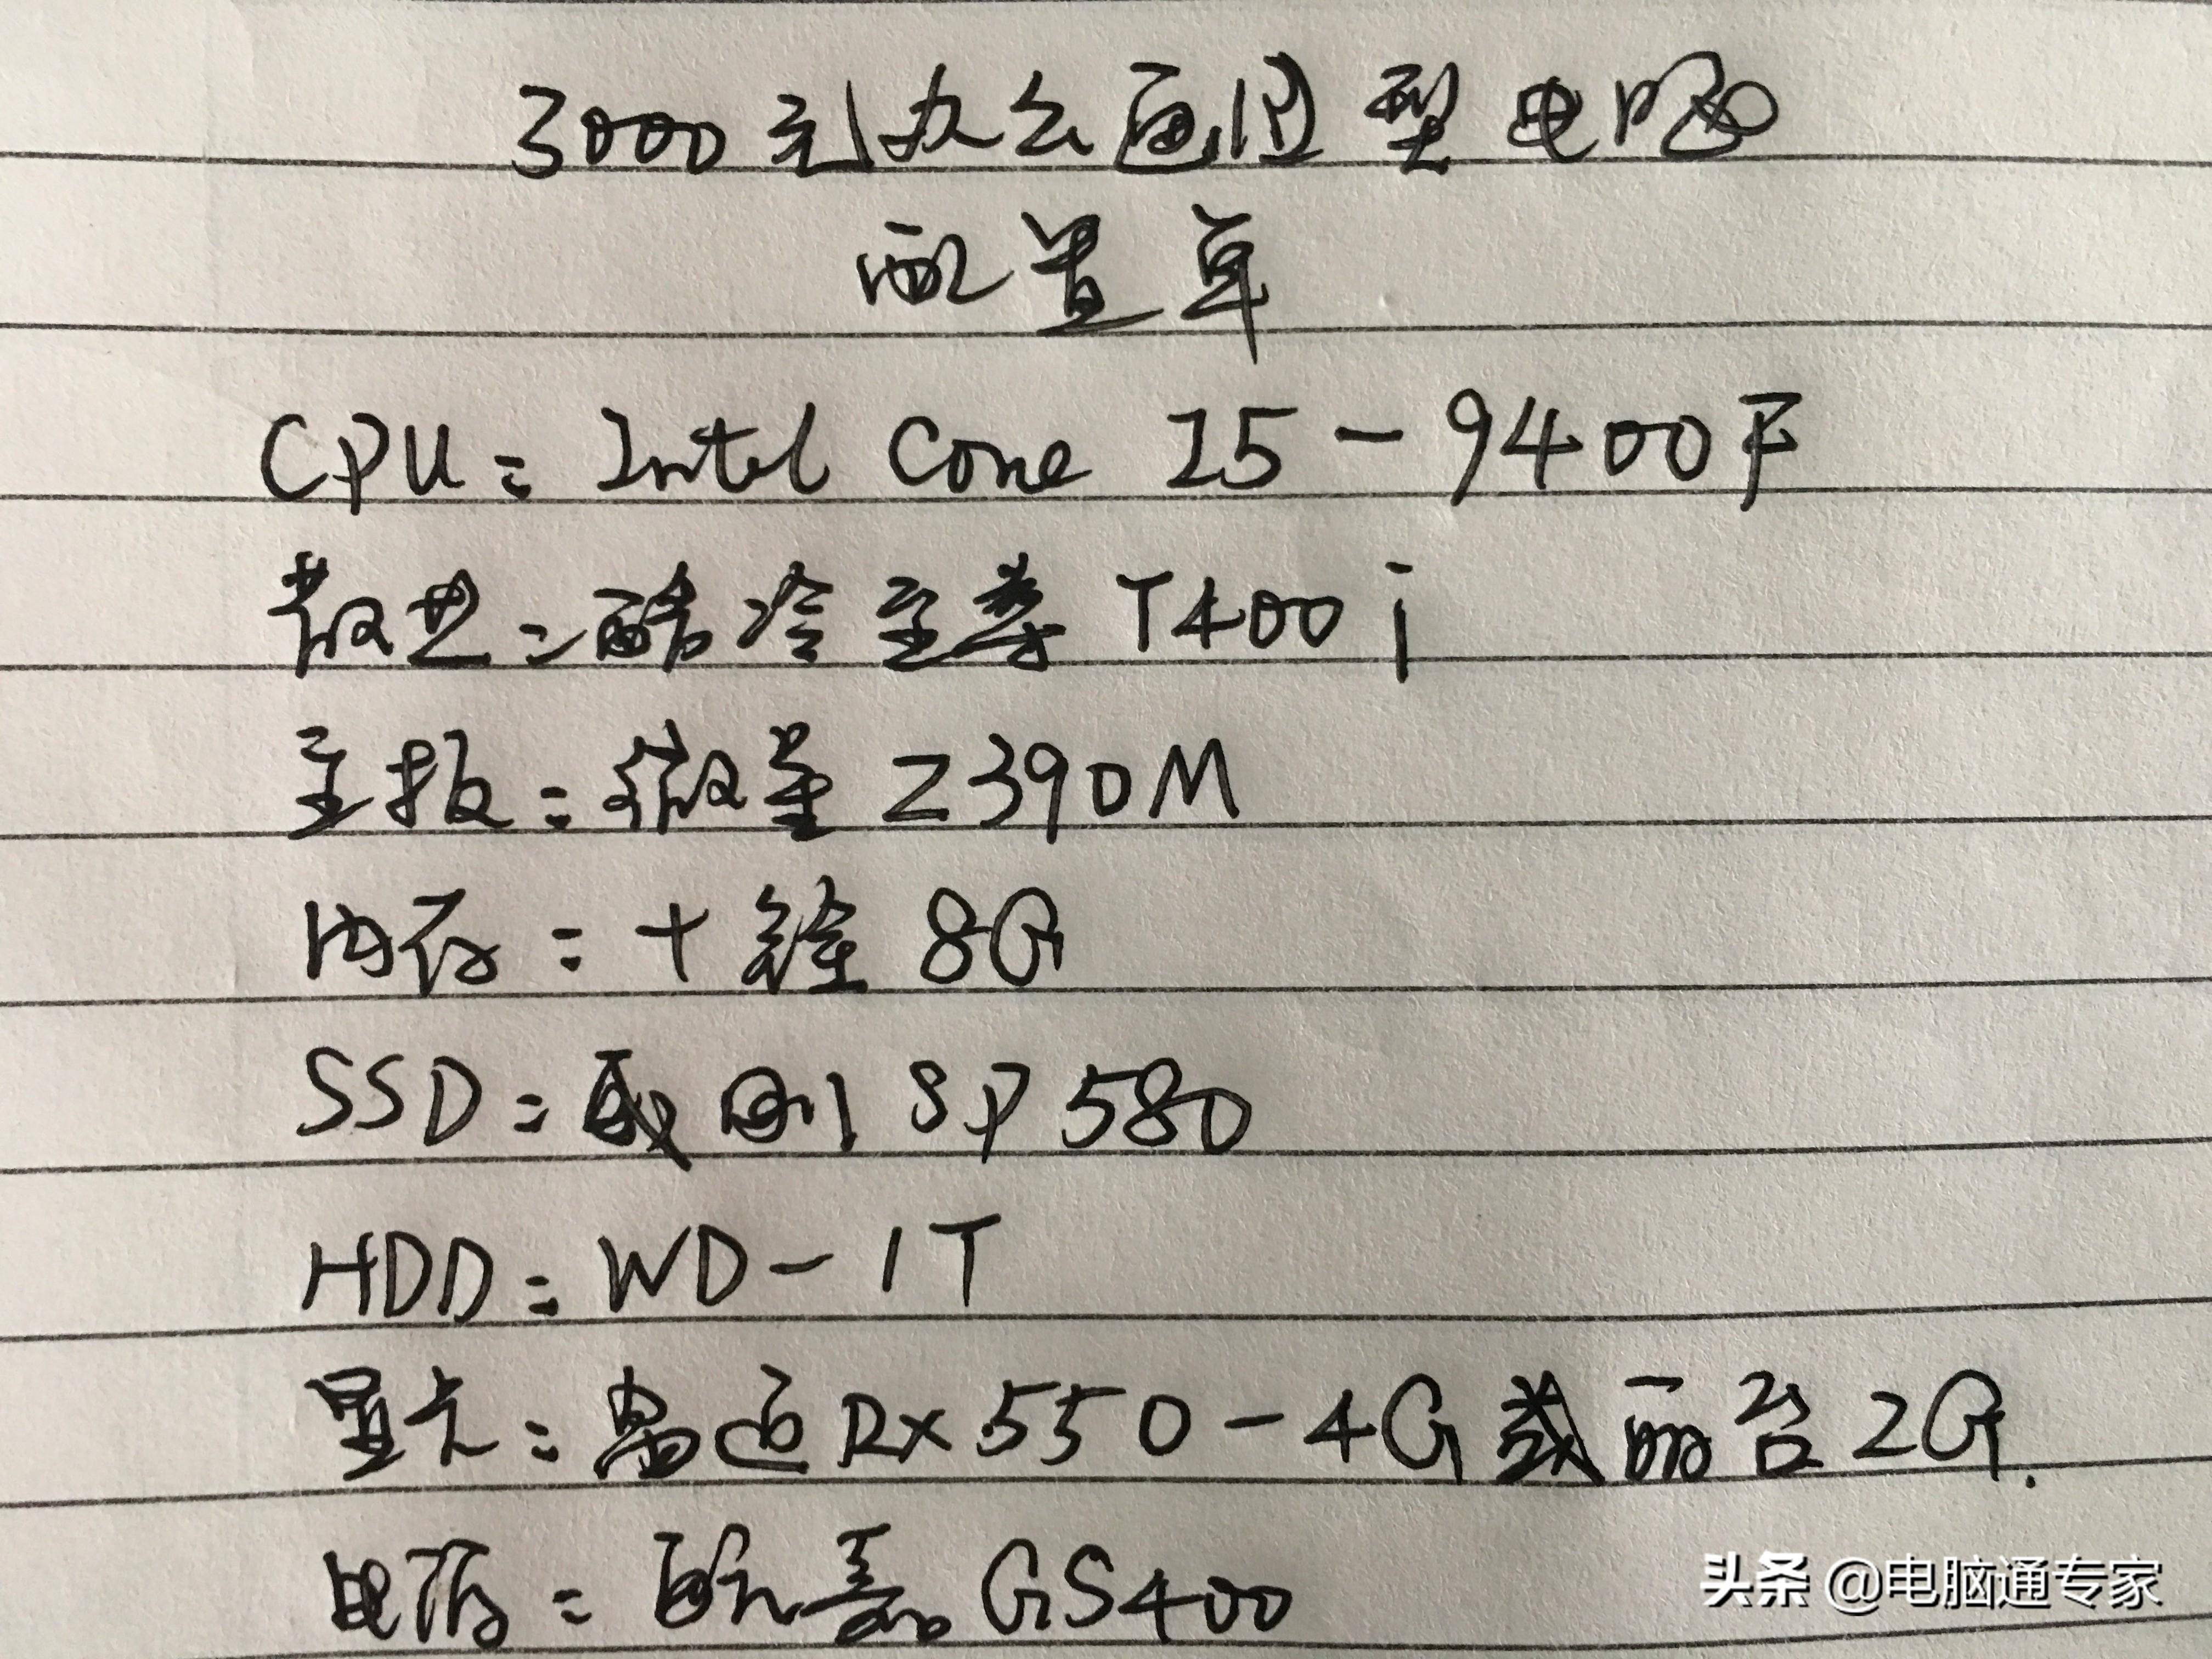 3000元办公通用型电脑
配置单
CPU: Intel Core I5-9400F
散热:酷冷至尊T400i
主板:微星Z390M
内存:十铨8G
SSD:威刚SP580
HDD:WD-1T
显卡:盈通RX550-4G或丽台2G.
电源:酷冷 GS400
头条 @电脑通专家